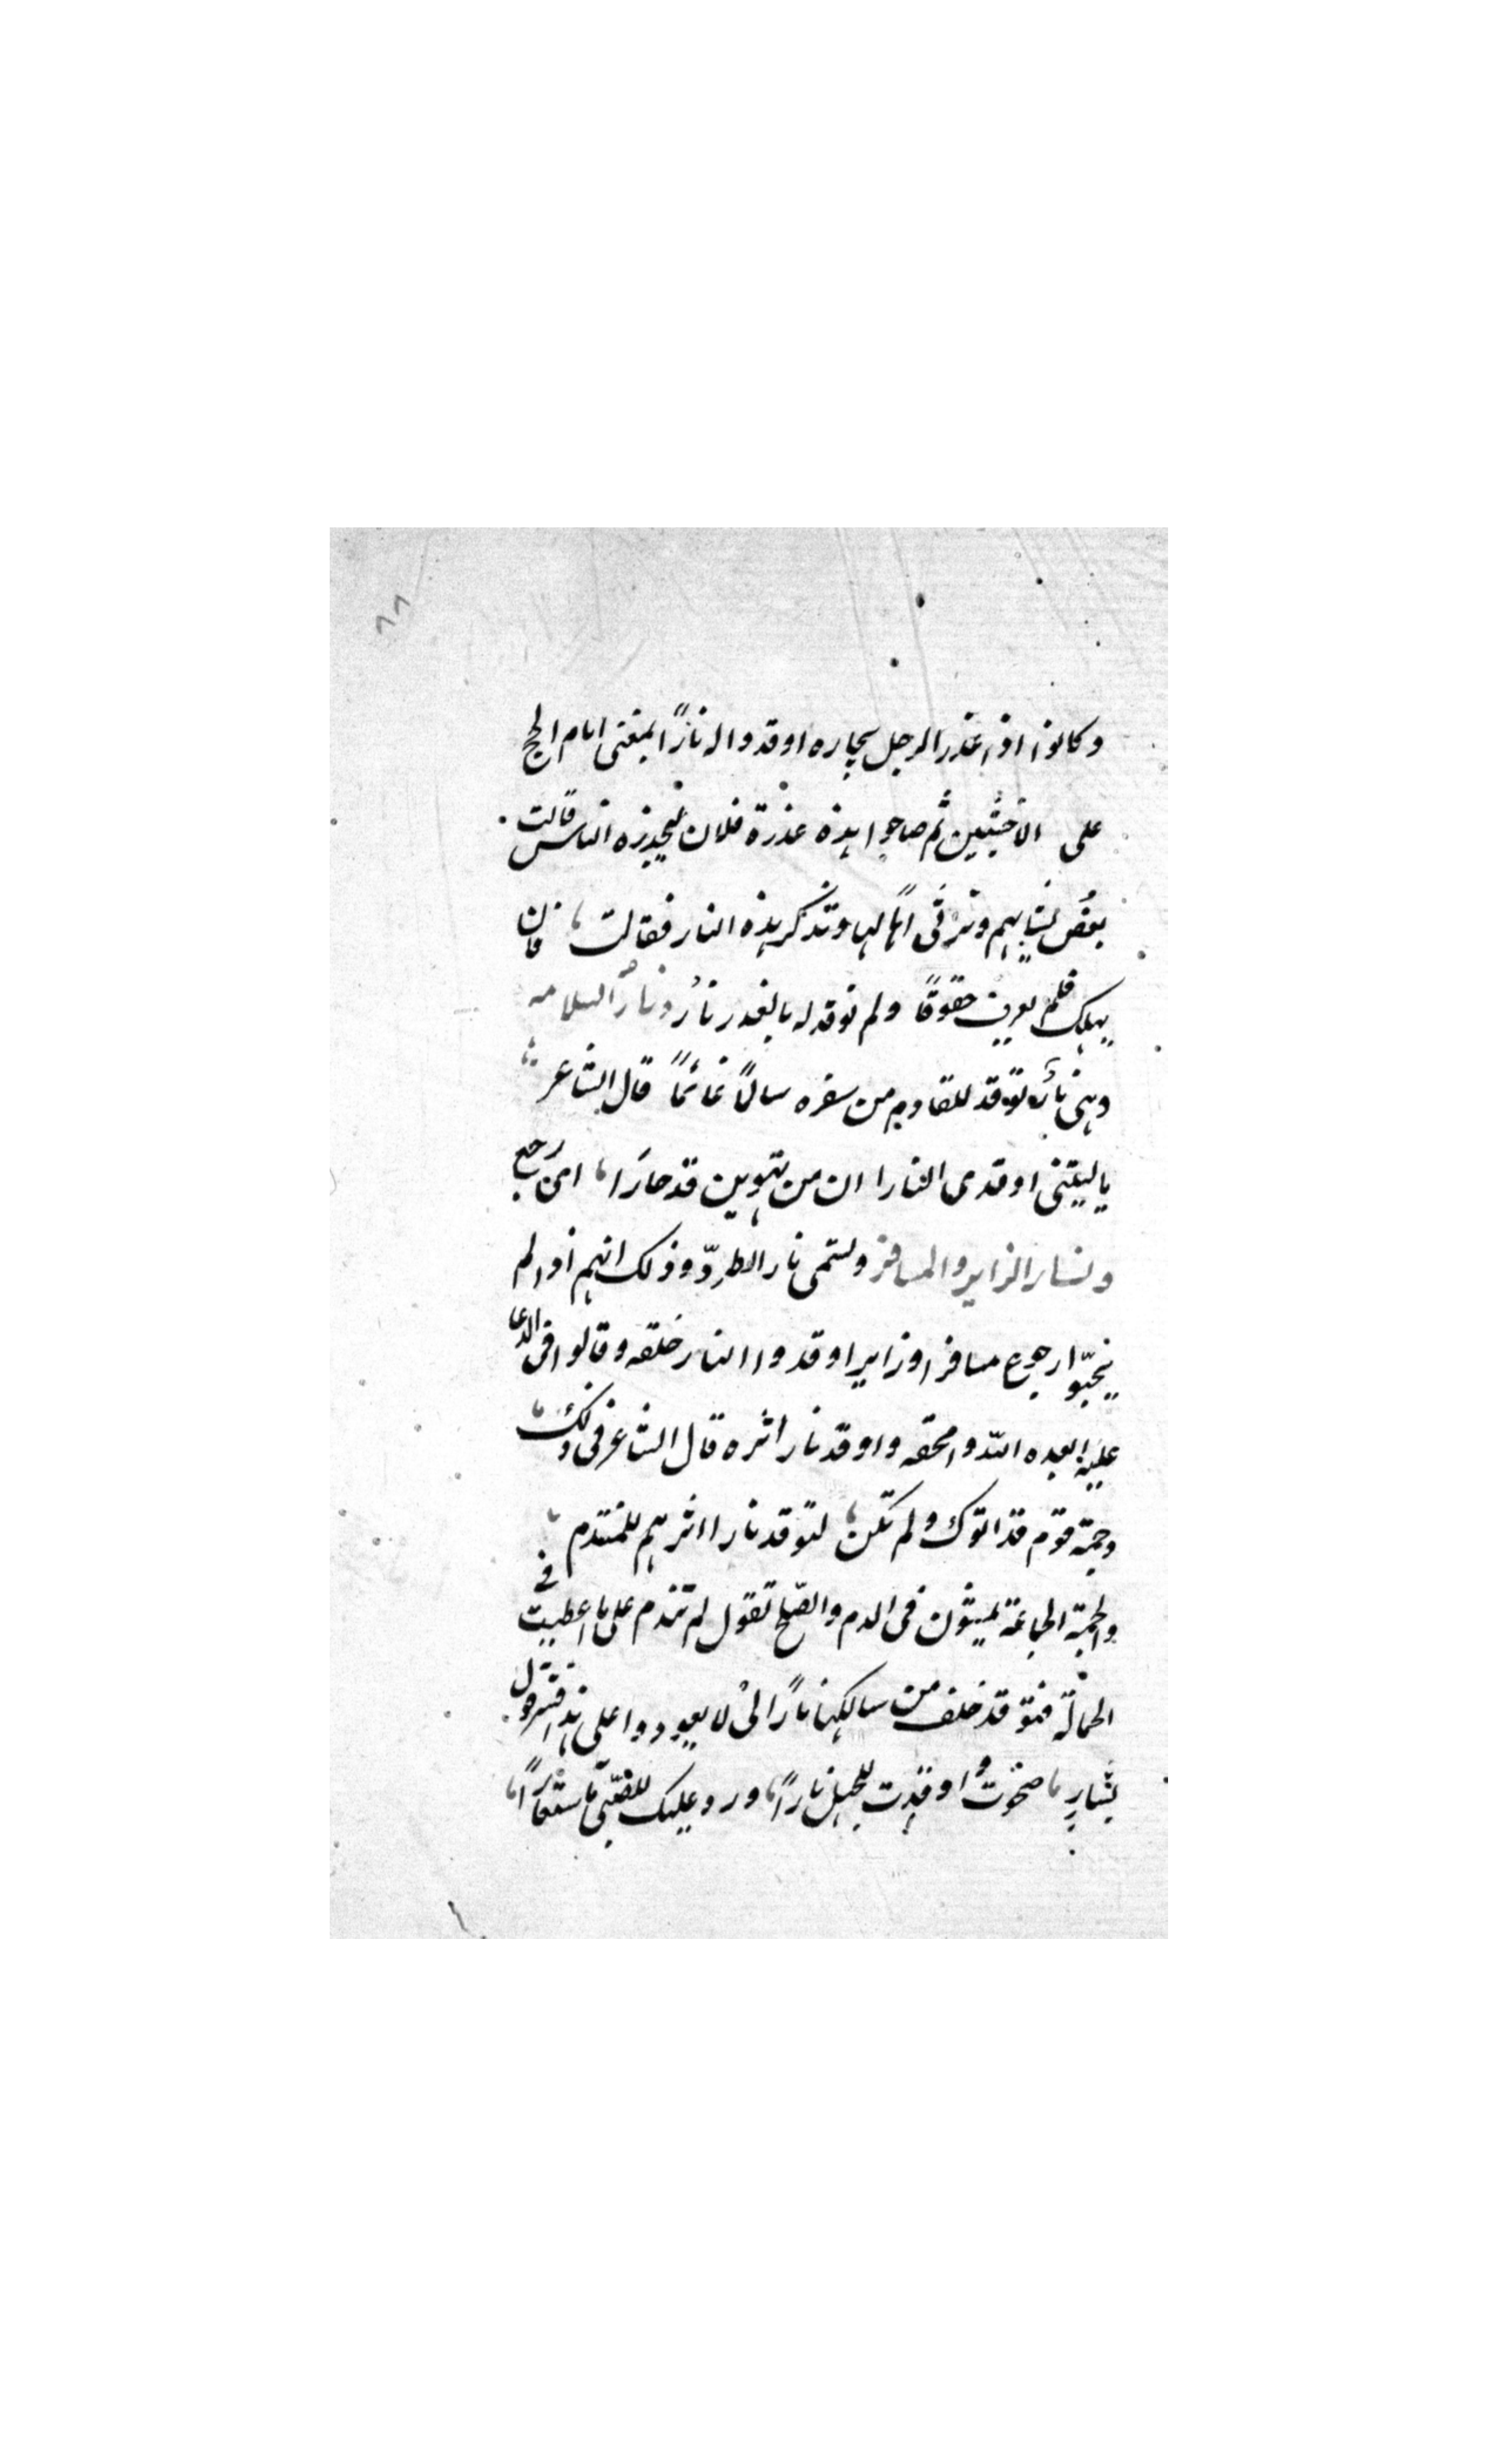 ٨٨
وكانوا اذا غدر الرجل بجاره اوقدوا له نارًا بمنى ايام الحج
على الاخشبين ثم صاحوا هذه غدرة فلان ليحذره الناس قالت
بعض نسايهم وترثى امًا لها وتذكر هذه النار فقالت فان
يهلك فلم يعرف حقوقًا ولم توقد له بالغدر نارُ ونارُ السلامه
وهى نار توقد للقادم من سفره سالمًا غانمًا قال الشاعر
يا ليتنى اوقدى النارا ان من تهوين قد حارَا اى رجع
ونار الزاير والمسافر وتسمى نار الطردّ وذلك انهم اذا لم
يحبّوا رجوع مسافر او زاير اوقدوا النار خلفه وقالوا فى الدعا
عليه ابعده الله وامحقه واوقد نارا اثره قال الشاعر فى ذلك
وجمة قوم قد اتوك ولم تكن لتوقد نارا اثرهم للتندم
والجمة الجماعة يمشون فى الدم والصلح تقول لم تندم على ما اعطيت فى
الحمالة فتوقد خلف من سالكها نارًا الىْ لا يعودوا على هذا فسّر قول
بشارٍ صحوت واوقدت للجهل نارًا ورد عليك الصبىّ ما استعارًا